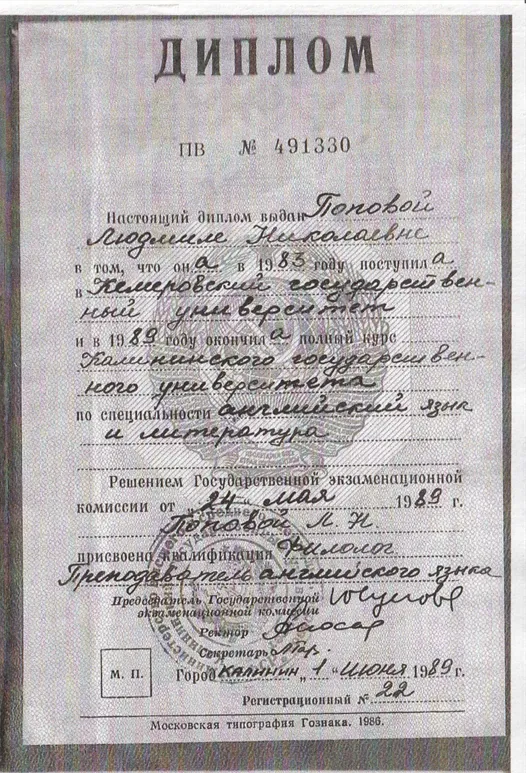 ДИПЛОМ
ПВ № 491330
Настоящий диплом выдан Поповой
Людмиле Николаевне
в том, что она в 1983 году поступила
в Кемеровский государствен-
ный университет
и в 1989 году окончила полный курс
Калининского государствен-
ного университета
по специальности английский язык
и литература
Решением Государственной экзаменационной
комиссии от „24“ мая 1989 г.
Поповой Л. Н
присвоена квалификация Филолог
Преподаватель английского языка
Председатель Государственной
экзаменационной комиссии
Ректор
Секретарь
М. П.
Город Калинин „1“ июня 1989 г.
Регистрационный № 22
Московская типография Гознака. 1986.